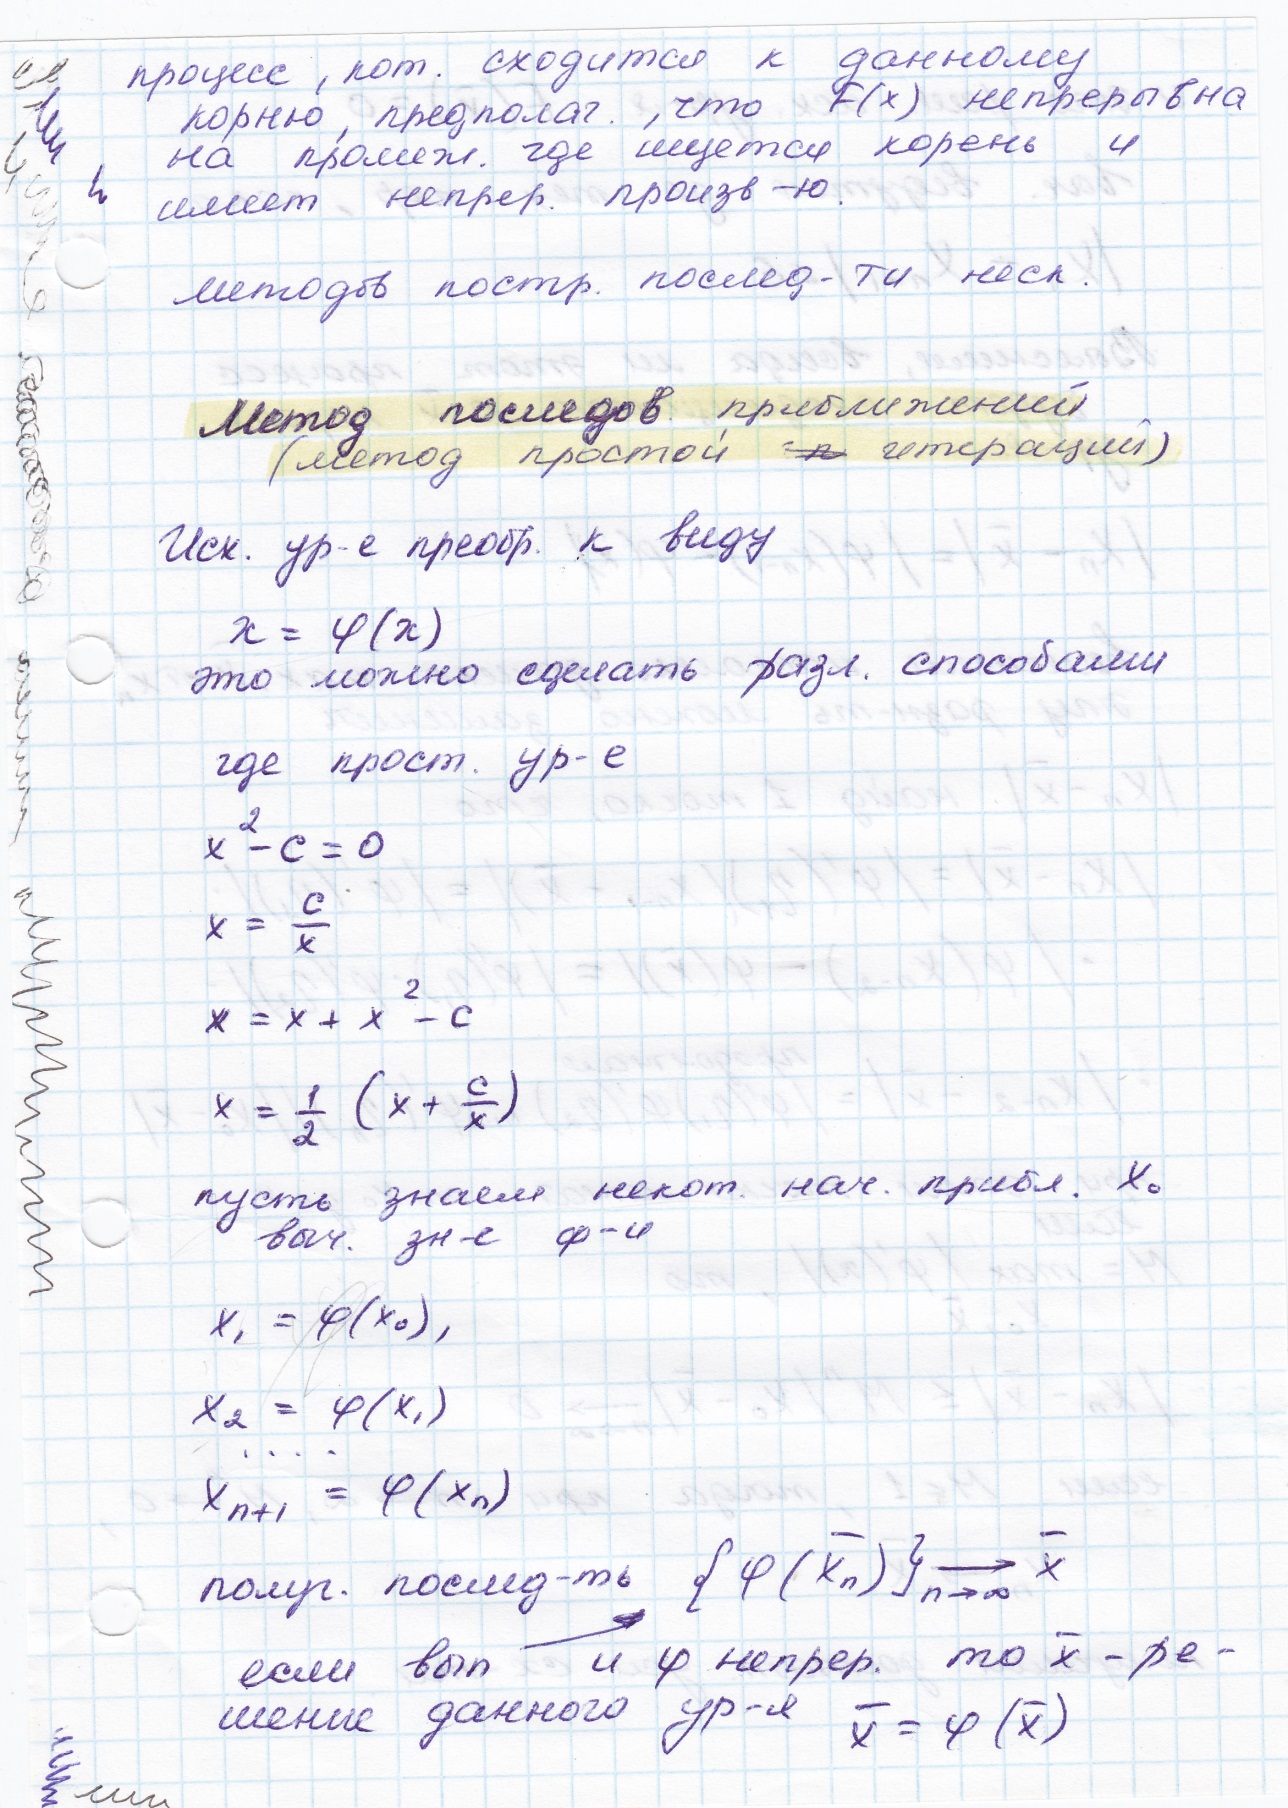 процесс, кот. сходится к данному
корню, предполаг., что F(x) непрерывна
на промеж. где ищется корень и
имеет непрер. произв-ю.
методов постр. послед-ти неск.
Метод последов. приближений
(метод простой итераций)
Исх. ур-е преобр. к виду
x = φ(x)
это можно сделать разл. способами
где прост. ур-е
x² - c = 0
x = c/x
x = x + x² - c
x = 1/2 (x + c/x)
пусть знаем некот. нач. прибл. x₀
выч. зн-е ф-и
x₁ = φ(x₀),
x₂ = φ(x₁)
. . . .
xₙ₊₁ = φ(xₙ)
получ. послед-ть {φ(x̄ₙ)} ⟶ x̄ n→∞
если вып ⟶ и φ непрер. то x̄ - ре-
шение данного ур-я x̄ = φ(x̄)